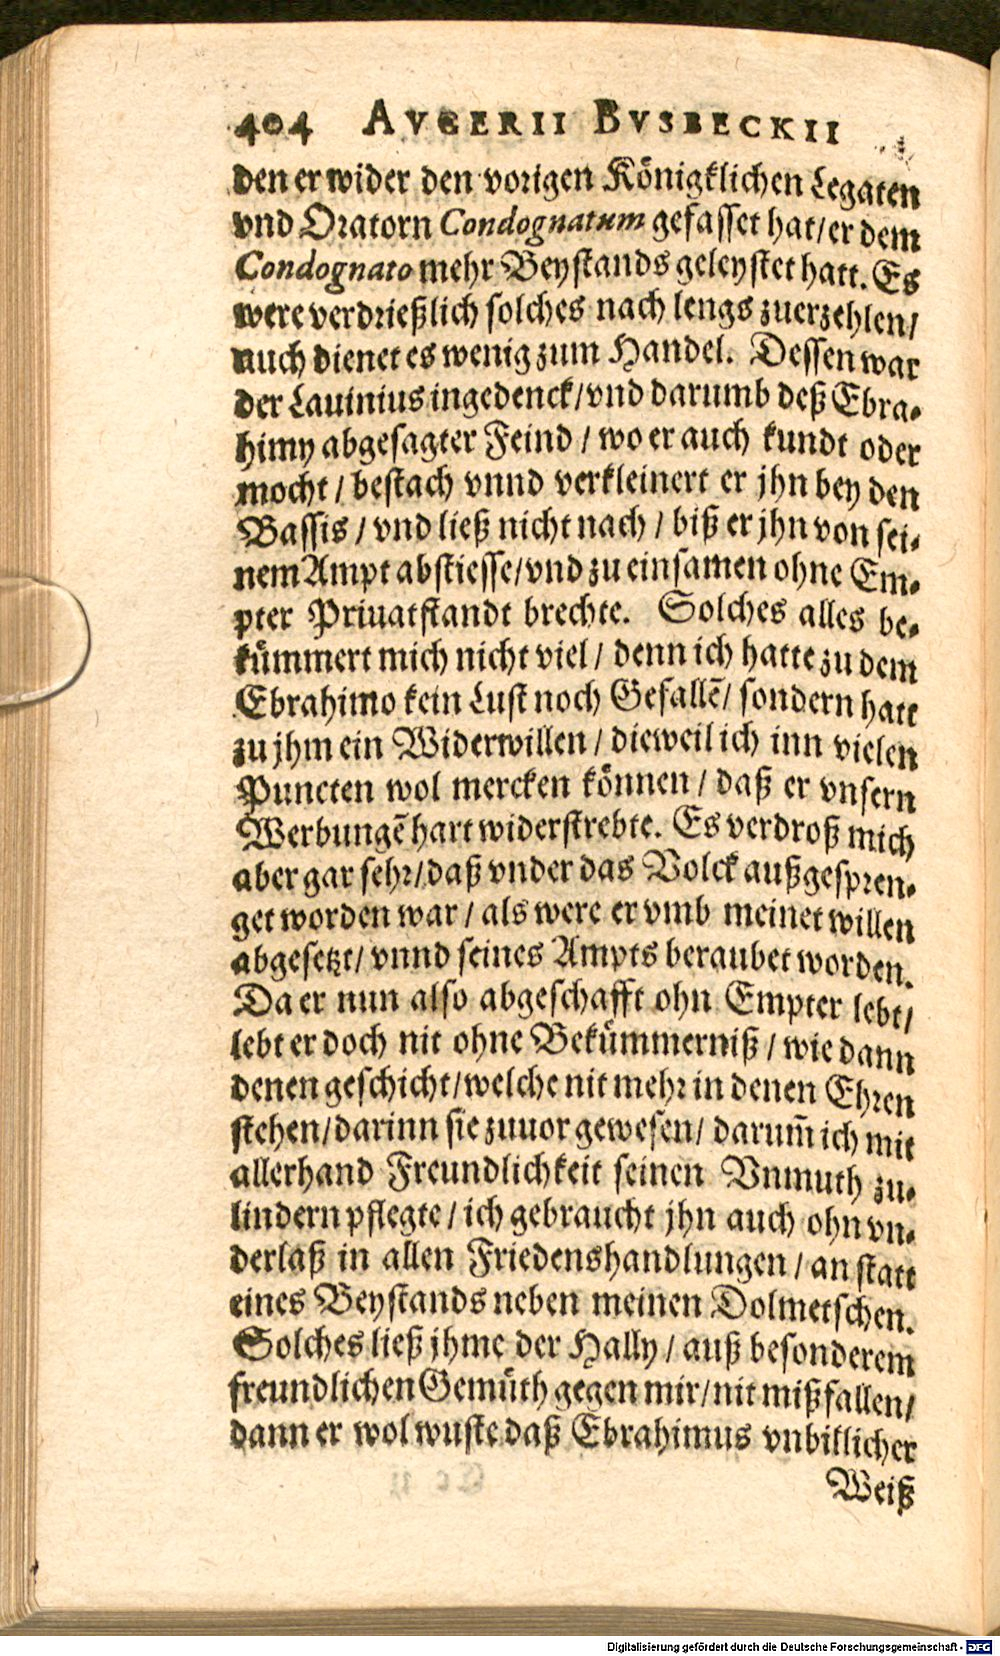 404 AVGERII BVSBECKII
den er wider den vorigen Königklichen Legaten
vnd Oratorn Condognatum gefasset hat/ er dem
Condognato mehr Beystands geleystet hatt. Es
were verdrießlich solches nach lengs zuerzehlen/
auch dienet es wenig zum Handel. Dessen war
der Lauinius ingedenck/ vnd darumb deß Ebra-
himy abgesagter Feind / wo er auch kundt oder
mocht / bestach vnnd verkleinert er jhn bey den
Bassis / vnd ließ nicht nach / biß er jhn von sei-
nem Ampt abstiesse/ vnd zu einsamen ohne Em-
pter Priuatstandt brechte. Solches alles be-
kümmert mich nicht viel / denn ich hatte zu dem
Ebrahimo kein Lust noch Gefallē/ sondern hatt
zu jhm ein Widerwillen / dieweil ich inn vielen
Puncten wol mercken können / daß er vnsern
Werbungē hart widerstrebte. Es verdroß mich
aber gar sehr/ daß vnder das Volck außgespren-
get worden war / als were er vmb meinet willen
abgesetzt/ vnnd seines Ampts beraubet worden.
Da er nun also abgeschafft ohn Empter lebt/
lebt er doch nit ohne Bekümmerniß / wie dann
denen geschicht/ welche nit mehr in denen Ehren
stehen/ darinn sie zuuor gewesen/ darum̄ ich mit
allerhand Freundlichkeit seinen Vnmuth zu-
lindern pflegte / ich gebraucht jhn auch ohn vn-
derlaß in allen Friedenshandlungen / an statt
eines Beystands neben meinen Dolmetschen.
Solches ließ jhme der Hally / auß besonderem
freundlichen Gemüth gegen mir/ nit mißfallen/
dann er wol wuste daß Ebrahimus vnbillicher
Weiß
Digitalisierung gefördert durch die Deutsche Forschungsgemeinschaft - DFG